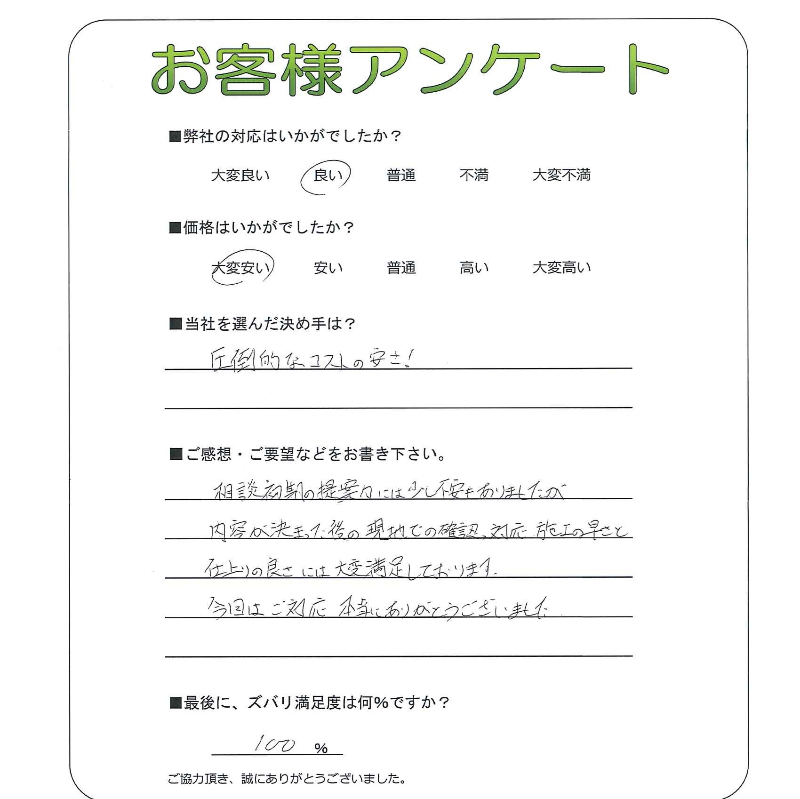 お客様アンケート
■弊社の対応はいかがでしたか？
大変良い 良い 普通 不満 大変不満
■価格はいかがでしたか？
大変安い 安い 普通 高い 大変高い
■当社を選んだ決め手は？
圧倒的なコストの安さ!
■ご感想・ご要望などをお書き下さい。
相談初期の提案力には少し不安もありましたが
内容が決まった後の現地での確認、対応 施工の早さと
仕上りの良さには大変満足しております.
今回はご対応 本当にありがとうございました
■最後に、ズバリ満足度は何％ですか？
100 %
ご協力頂き、誠にありがとうございました。